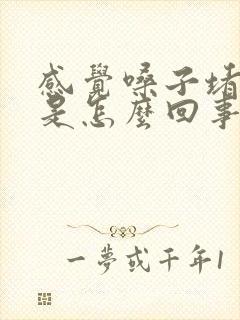 感覺嗓子堵
是怎麼回事
一夢或千年1